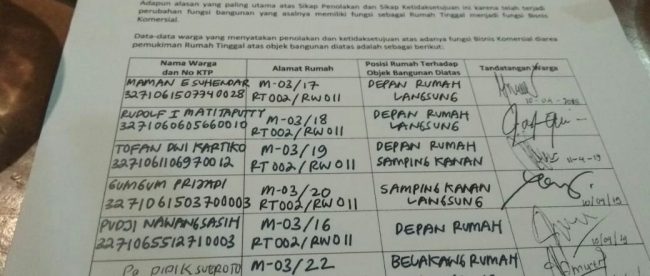 Adapun alasan yang paling utama atas Sikap Penolakan dan Sikap Ketidaksetujuan ini karena telah terjadi
perubahan fungsi bangunan yang asalnya memiliki fungsi sebagai Rumah Tinggal menjadi fungsi Bisnis
Komersial.
Data-data warga yang menyatakan penolakan dan ketidaksetujuan atas adanya fungsi Bisnis Komersial diarea
pemukiman Rumah Tinggal atas objek bangunan diatas adalah sebagai berikut:
Nama Warga
dan No KTP
Alamat Rumah
Posisi Rumah Terhadap
Objek Bangunan Diatas
Tandatangan Warga
MAMAN E SUHENDAR
3271061507740028
M-03/17
RT002/RW011
DEPAN RUMAH
LANGSUNG
RUDOLF I MATITAPUTTY
3271060605660010
M-03/18
RT002/RW011
DEPAN RUMAH
LANGSUNG
TOFAN DWI KARTIKO
3271061106970012
M-03/19
RT002/RW011
DEPAN RUMAH
SAMPING KANAN
11-4-19
GUMGUM PRIJADI
3271061503700003
M-03/20
RT002/RW011
SAMPING KANAN
LANGSUNG
10/04/19
PUDJI NAWANGSASIH
3271065512710003
M-03/16
RT002/RW011
DEPAN RUMAH
10/04/19
M-03/22
BELAKANG RUMAH